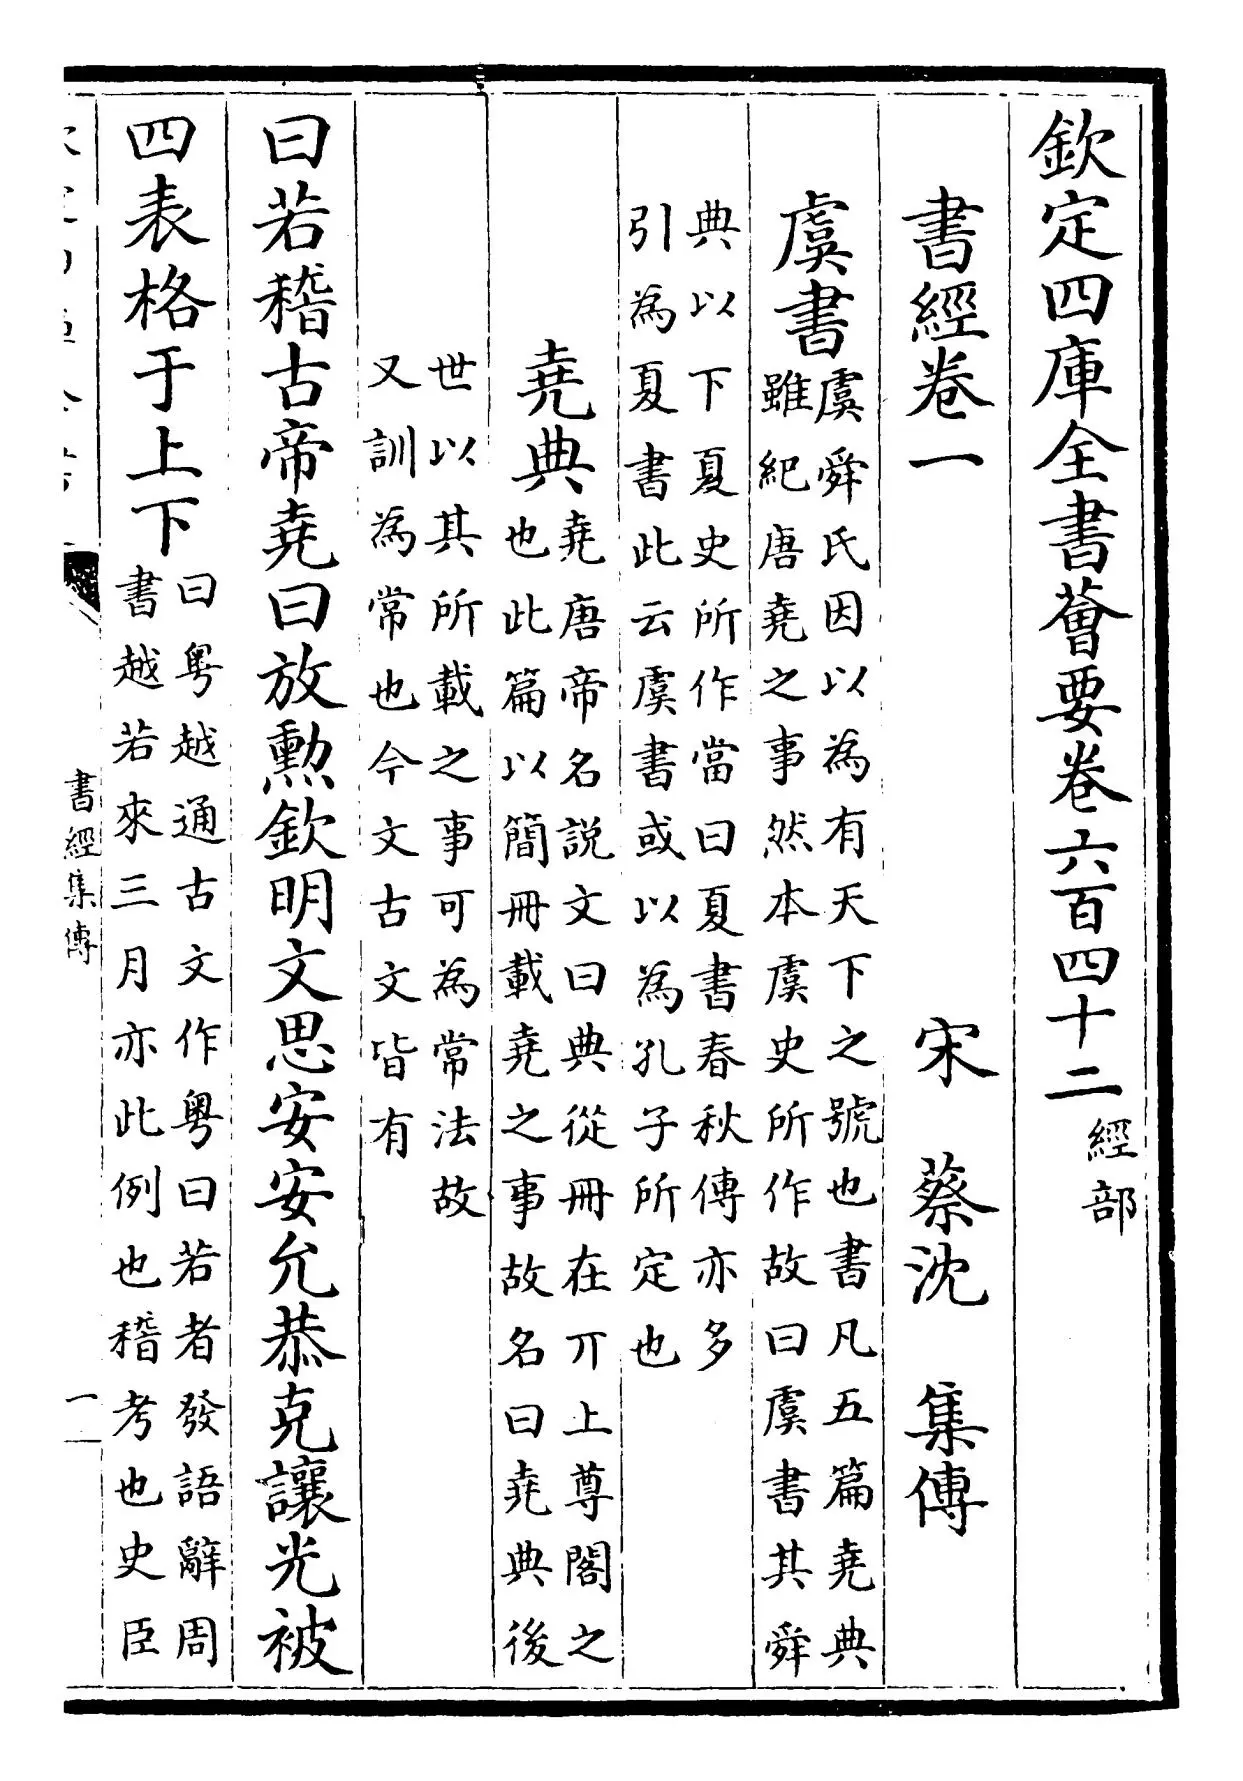 欽定四庫全書薈要卷六百四十二經部
書經卷一
宋 蔡沈 集傳
虞書
虞舜氏因以為有天下之號也書凡五篇堯典
雖紀唐堯之事然本虞史所作故曰虞書其舜
典以下夏史所作當曰夏書春秋傳亦多
引為夏書此云虞書或以為孔子所定也
堯典
堯唐帝名說文曰典從冊在丌上尊閣之
也此篇以簡冊載堯之事故名曰堯典後
世以其所載之事可為常法故
又訓為常也今文古文皆有
曰若稽古帝堯曰放勳欽明文思安安允恭克讓光被
四表格于上下
曰粵越通古文作粵曰若者發語辭周
書越若來三月亦此例也稽考也史臣
書經集傳
一